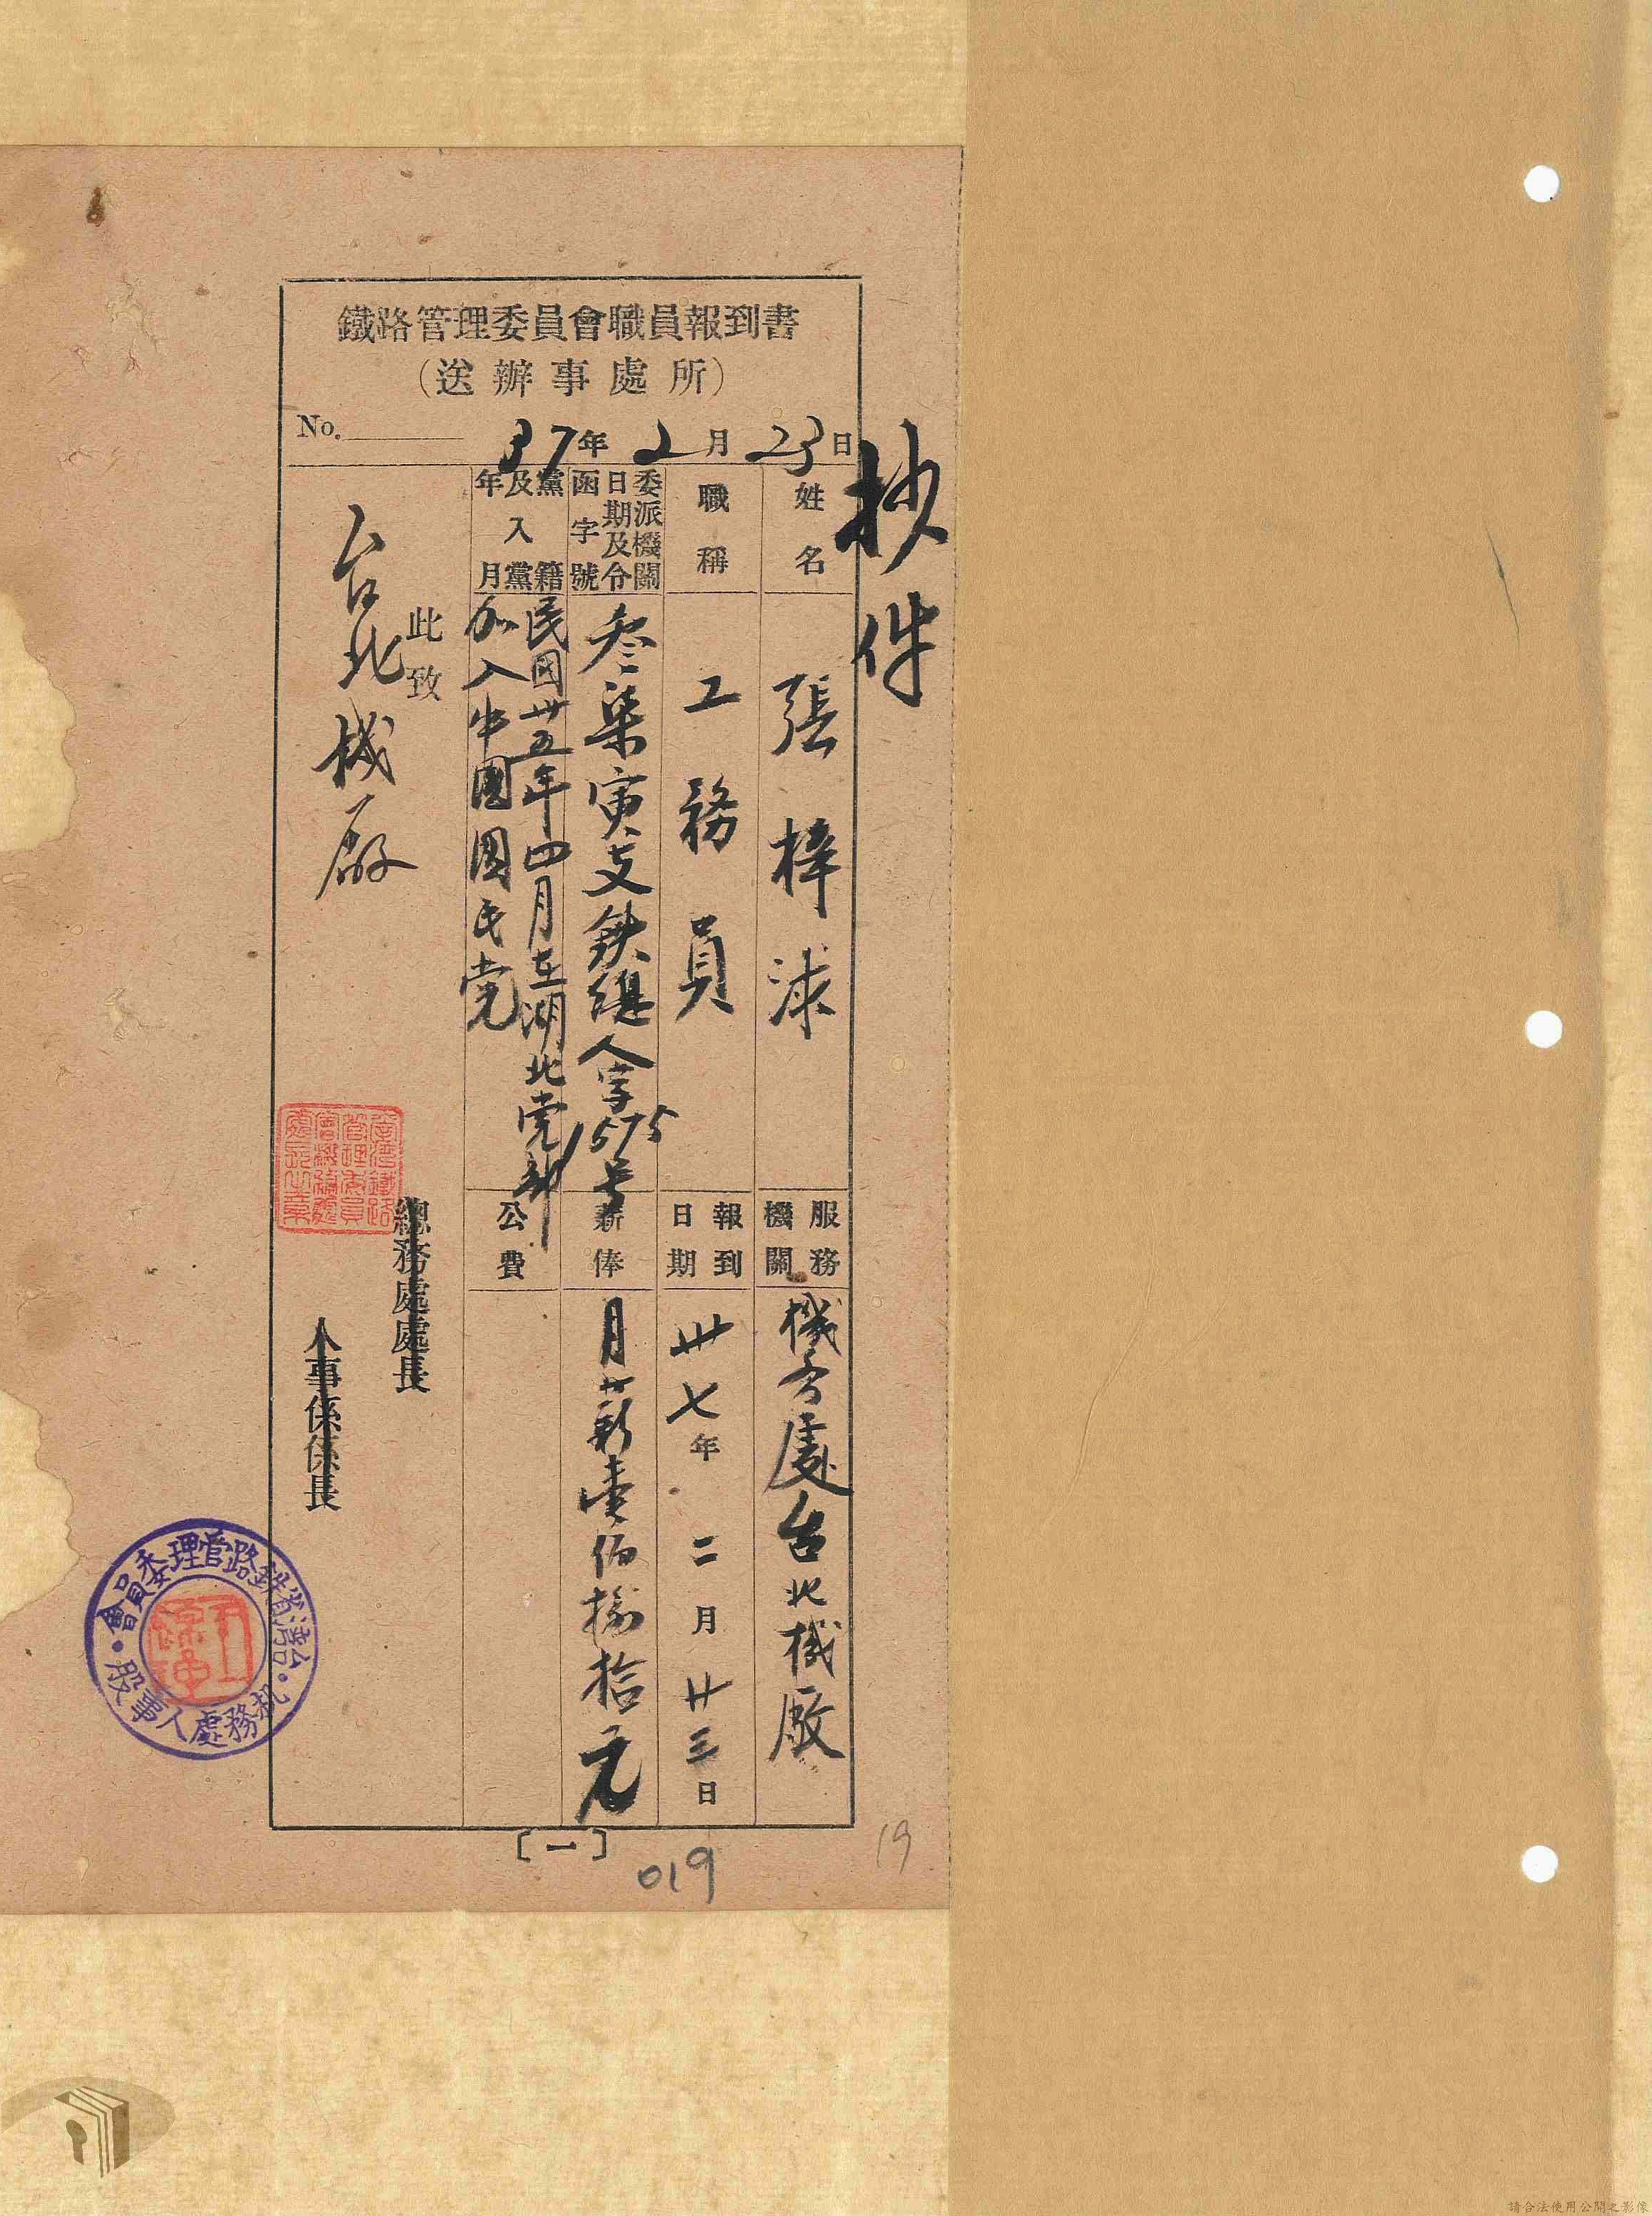 抄件
鐵路管理委員會職員報到書
（送辦事處所）
No.
37年2月23日
姓名
張梓浗
服務機關
機务處台北機廠
職稱
工務員
報到日期
卅七年二月廿三日
委派機關日期及令函字號
叁柒寅支鉄人字1575号
薪俸
月薪壹佰拾元
黨籍及入黨年月
民國卅五年四月在湖北党部
加入中國國民党
公費
此致
台北機廠
總務處處長
人事係係長
臺灣鐵路管理委員會機務處處長之章
台灣省鉄路管理委員會
机務處人事股
〔一〕
019
19
請合法使用公開之影像